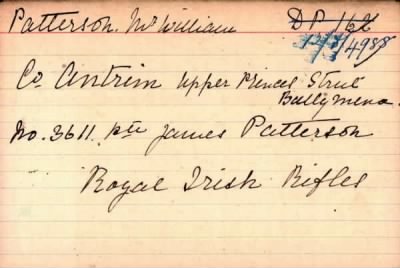 Patterson. Mr William D.P. 162
12/3/4988
Co Antrim Upper Princes Street
Ballymena.
No. 3611. Pte James Patterson
Royal Irish Rifles